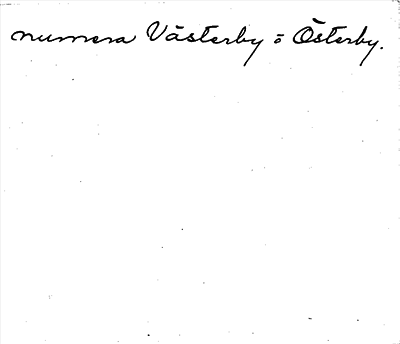 numera Västerby o Österby.